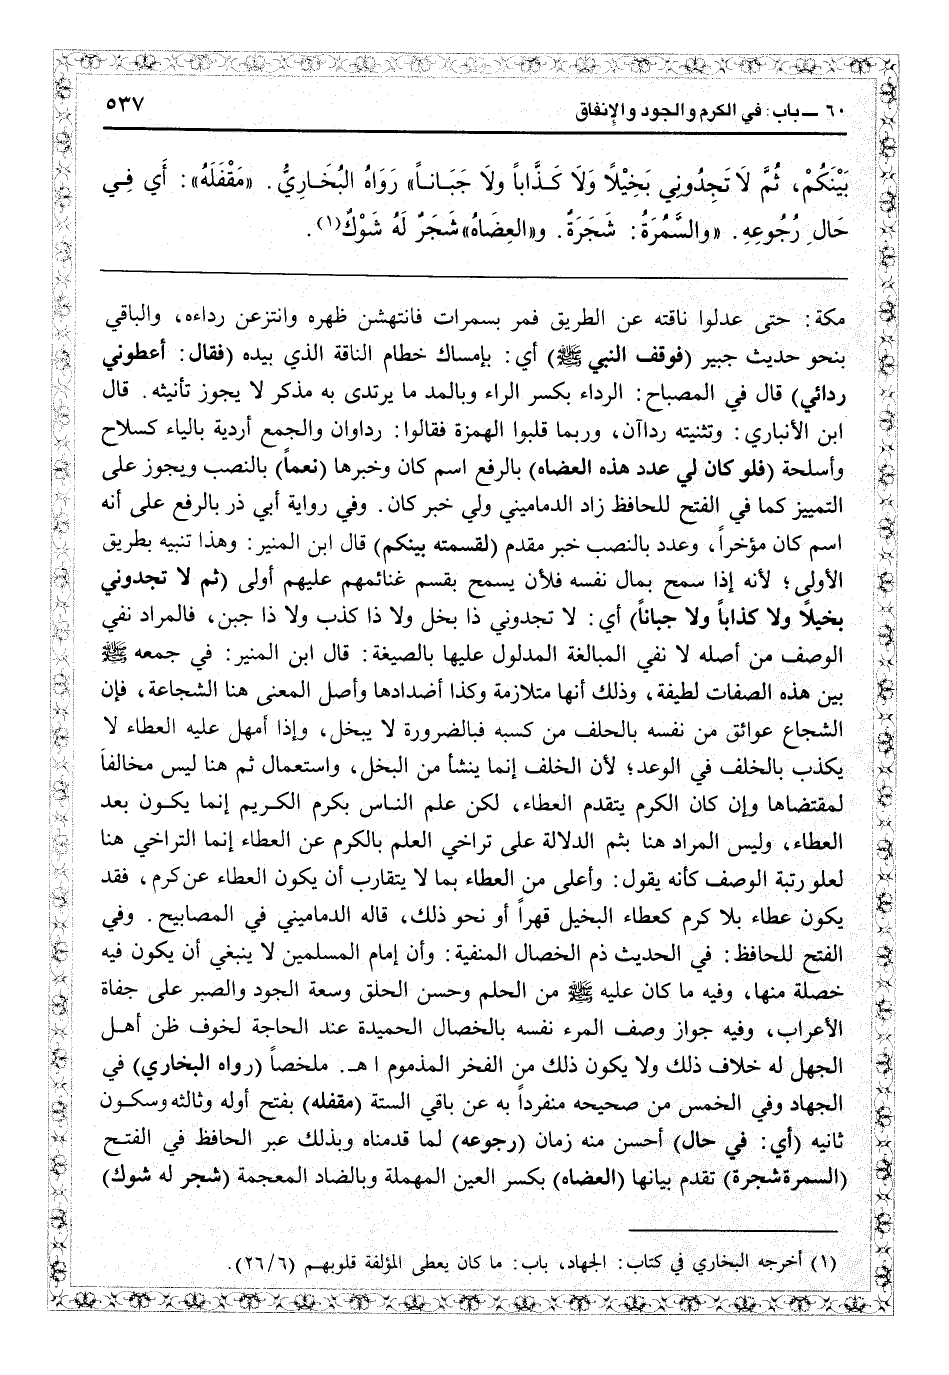 ٦٠ ــ باب: في الكرم والجود والإنفاق
٥٣٧
بَيْنَكُمْ، ثُمَّ لَا تَجِدُونِي بَخِيْلاً وَلَا كَذَّاباً ولَا جَبَاناً» رَوَاهُ البُخَارِيُّ. «مَقْفَلَهُ»: أَي فِي
حَالِ رُجُوعِهِ. «والسَّمُرَةُ: شَجَرَةٌ. و«العِضَاهُ»شَجَرٌ لَهُ شَوْكٌ(١).
مكة: حتى عدلوا ناقته عن الطريق فمر بسمرات فانتهشن ظهره وانتزعن رداءه، والباقي
بنحو حديث جبير (فوقف النبي ﷺ) أي: بإمساك خطام الناقة الذي بيده (فقال: أعطوني
ردائي) قال في المصباح: الرداء بكسر الراء وبالمد ما يرتدى به مذكر لا يجوز تأنيثه. قال
ابن الأنباري: وتثنيته رداآن، وربما قلبوا الهمزة فقالوا: رداوان والجمع أردية بالياء كسلاح
وأسلحة (فلو كان لي عدد هذه العضاه) بالرفع اسم كان وخبرها (نعماً) بالنصب ويجوز على
التمييز كما في الفتح للحافظ زاد الدماميني ولي خبر كان. وفي رواية أبي ذر بالرفع على أنه
اسم كان مؤخراً، وعدد بالنصب خبر مقدم (لقسمته بينكم) قال ابن المنير: وهذا تنبيه بطريق
الأولى؛ لأنه إذا سمح بمال نفسه فلأن يسمح بقسم غنائمهم عليهم أولى (ثم لا تجدوني
بخيلًا ولا كذاباً ولا جباناً) أي: لا تجدوني ذا بخل ولا ذا كذب ولا ذا جبن، فالمراد نفي
الوصف من أصله لا نفي المبالغة المدلول عليها بالصيغة: قال ابن المنير: في جمعه ﷺ
بين هذه الصفات لطيفة، وذلك أنها متلازمة وكذا أضدادها وأصل المعنى هنا الشجاعة، فإن
الشجاع عوائق من نفسه بالحلف من كسبه فبالضرورة لا يبخل، وإذا أمهل عليه العطاء لا
يكذب بالخلف في الوعد؛ لأن الخلف إنما ينشأ من البخل، واستعمال ثم هنا ليس مخالفاً
لمقتضاها وإن كان الكرم يتقدم العطاء، لكن علم الناس بكرم الكريم إنما يكون بعد
العطاء، وليس المراد هنا بثم الدلالة على تراخي العلم بالكرم عن العطاء إنما التراخي هنا
لعلو رتبة الوصف كأنه يقول: وأعلى من العطاء بما لا يتقارب أن يكون العطاء عن كرم، فقد
يكون عطاء بلا كرم كعطاء البخيل قهراً أو نحو ذلك، قاله الدماميني في المصابيح. وفي
الفتح للحافظ: في الحديث ذم الخصال المنفية: وأن إمام المسلمين لا ينبغي أن يكون فيه
خصلة منها، وفيه ما كان عليه ﷺ من الحلم وحسن الخلق وسعة الجود والصبر على جفاة
الأعراب، وفيه جواز وصف المرء نفسه بالخصال الحميدة عند الحاجة لخوف ظن أهل
الجهل له خلاف ذلك ولا يكون ذلك من الفخر المذموم اهـ. ملخصاً (رواه البخاري) في
الجهاد وفي الخمس من صحيحه منفرداً به عن باقي الستة (مقفله) بفتح أوله وثالثه وسكون
ثانيه (أي: في حال) أحسن منه زمان (رجوعه) لما قدمناه وبذلك عبر الحافظ في الفتح
(السمرة شجرة) تقدم بيانها (العضاه) بكسر العين المهملة وبالضاد المعجمة (شجر له شوك)
(١) أخرجه البخاري في كتاب: الجهاد، باب: ما كان يعطى المؤلفة قلوبهم (٢٦/٦).